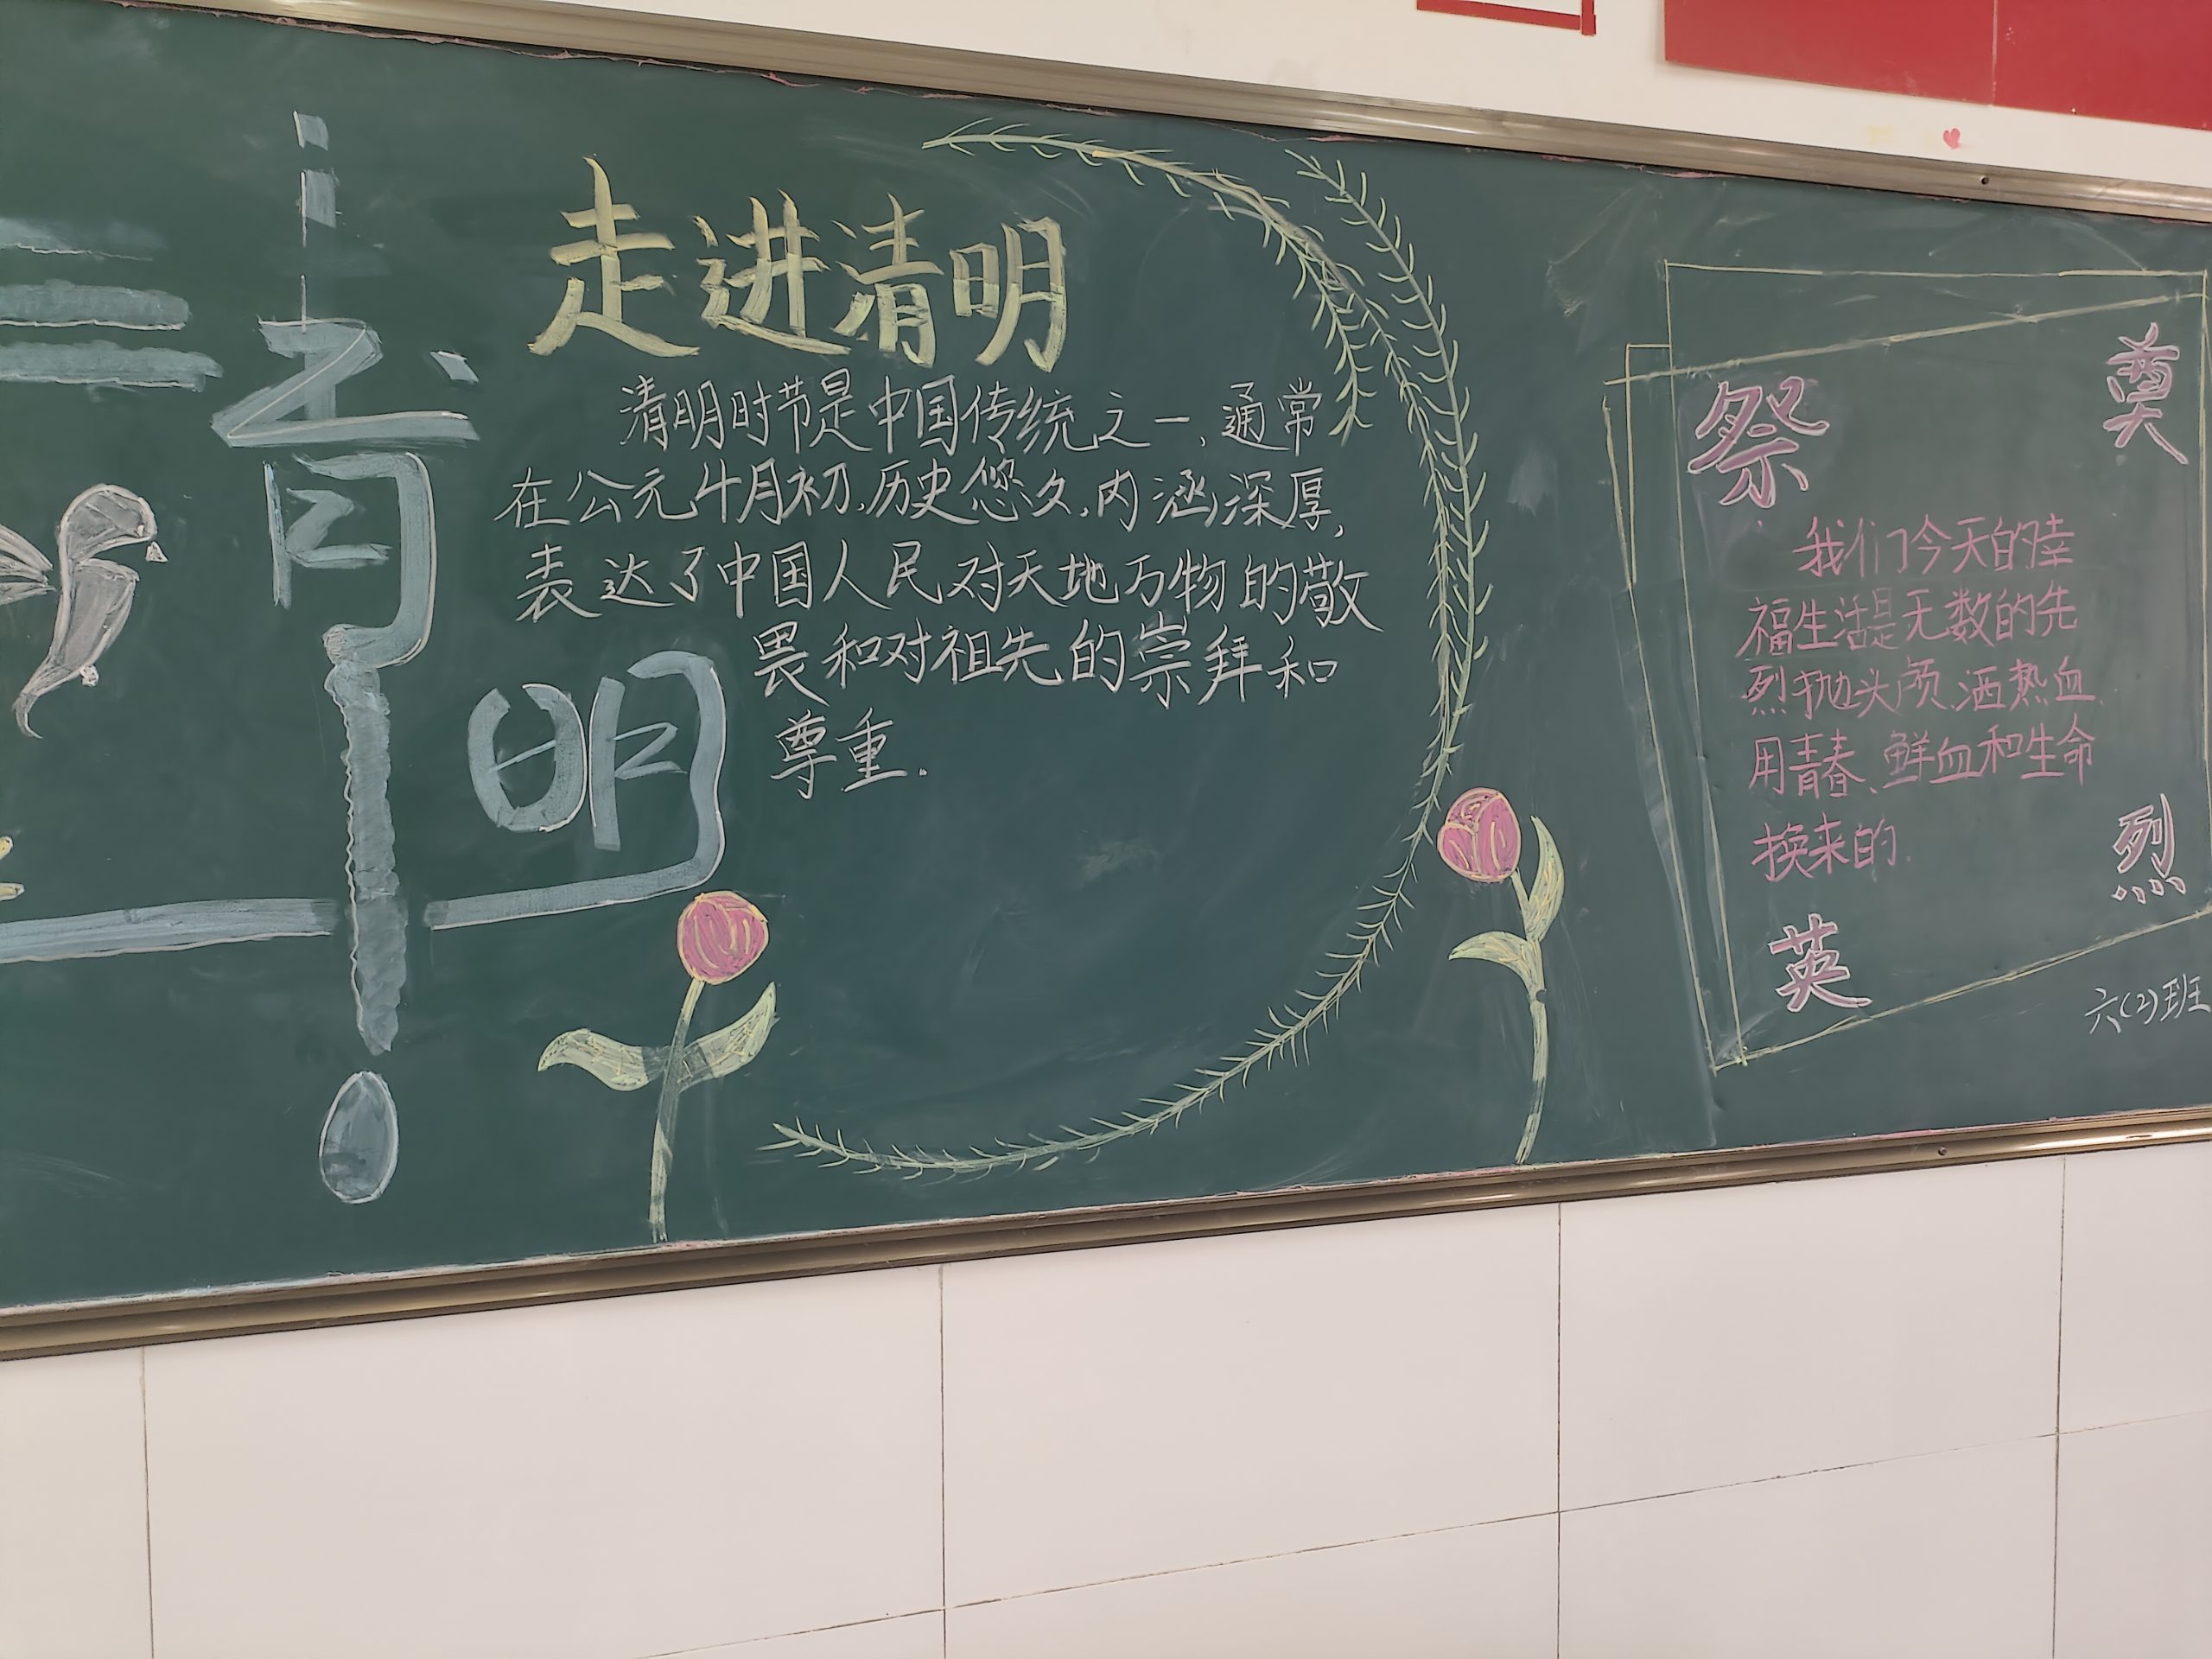 清明
走进清明
清明时节是中国传统之一,通常
在公元4月初,历史悠久,内涵深厚,
表达了中国人民对天地万物的敬
畏和对祖先的崇拜和
尊重.
祭
奠
我们今天的幸
福生活是无数的先
烈抛头颅、洒热血、
用青春、鲜血和生命
换来的.
英
烈
六(2)班